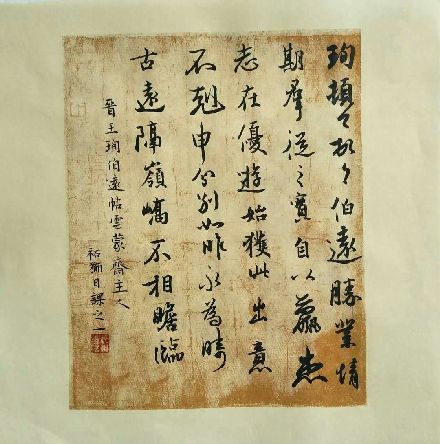 珣頓首頓首伯遠勝業情
期羣從之寶自以羸患
志在優遊始獲此出意
不剋申分別如昨永為疇
古遠隔嶺嶠不相瞻臨
晉王珣伯遠帖雲蒙齋主人
祐獅日課之一